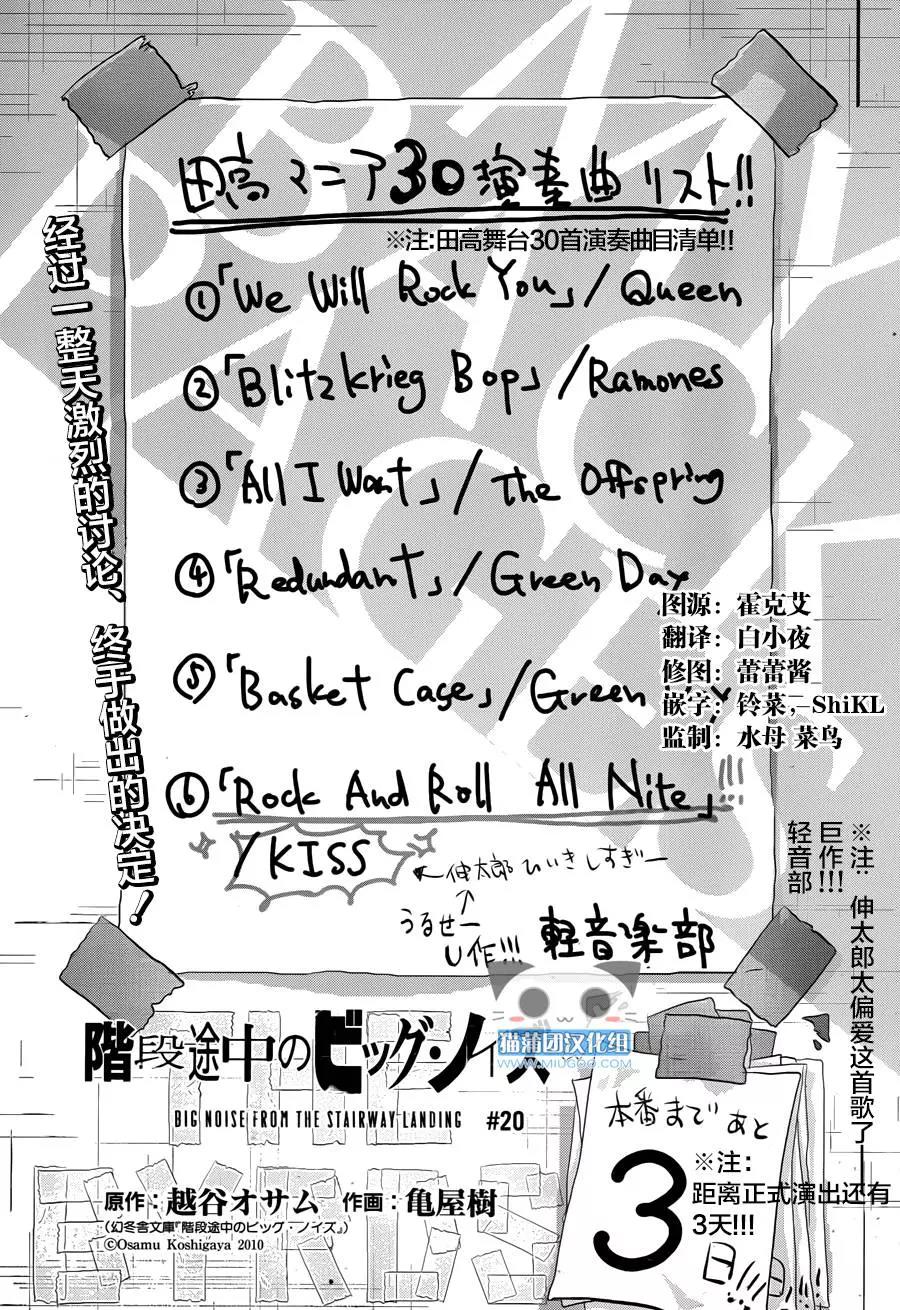 田高マニア30演奏曲リスト!!
※注:田高舞台30首演奏曲目清单!!
①「We Will Rock You」/Queen
②「Blitzkrieg Bop」/Ramones
③「All I Want」/The Offspring
④「Redundant」/Green Day
⑤「Basket Case」/Green
⑥「Rock And Roll All Nite」!!!
/KISS
←伸太郎ひいきしすぎー
↑
うるせー
U作!!!
軽音楽部
经过一整天激烈的讨论、
终于做出的决定！
图源：霍克艾
翻译：白小夜
修图：蕾蕾酱
嵌字：铃菜，ShiKL
监制：水母 菜鸟
※注：伸太郎太偏爱这首歌了—
巨作!!!
轻音部
猫蒲团汉化组
WWW.MIUGOO.COM
階段途中のビッグ・ノイズ
BIG NOISE FROM THE STAIRWAY LANDING #20
原作：越谷オサム 作画：亀屋樹
（幻冬舎文庫『階段途中のビッグ・ノイズ』）
©Osamu Koshigaya 2010
本番まであと
3
日!!!
※注：
距离正式演出还有
3天!!!